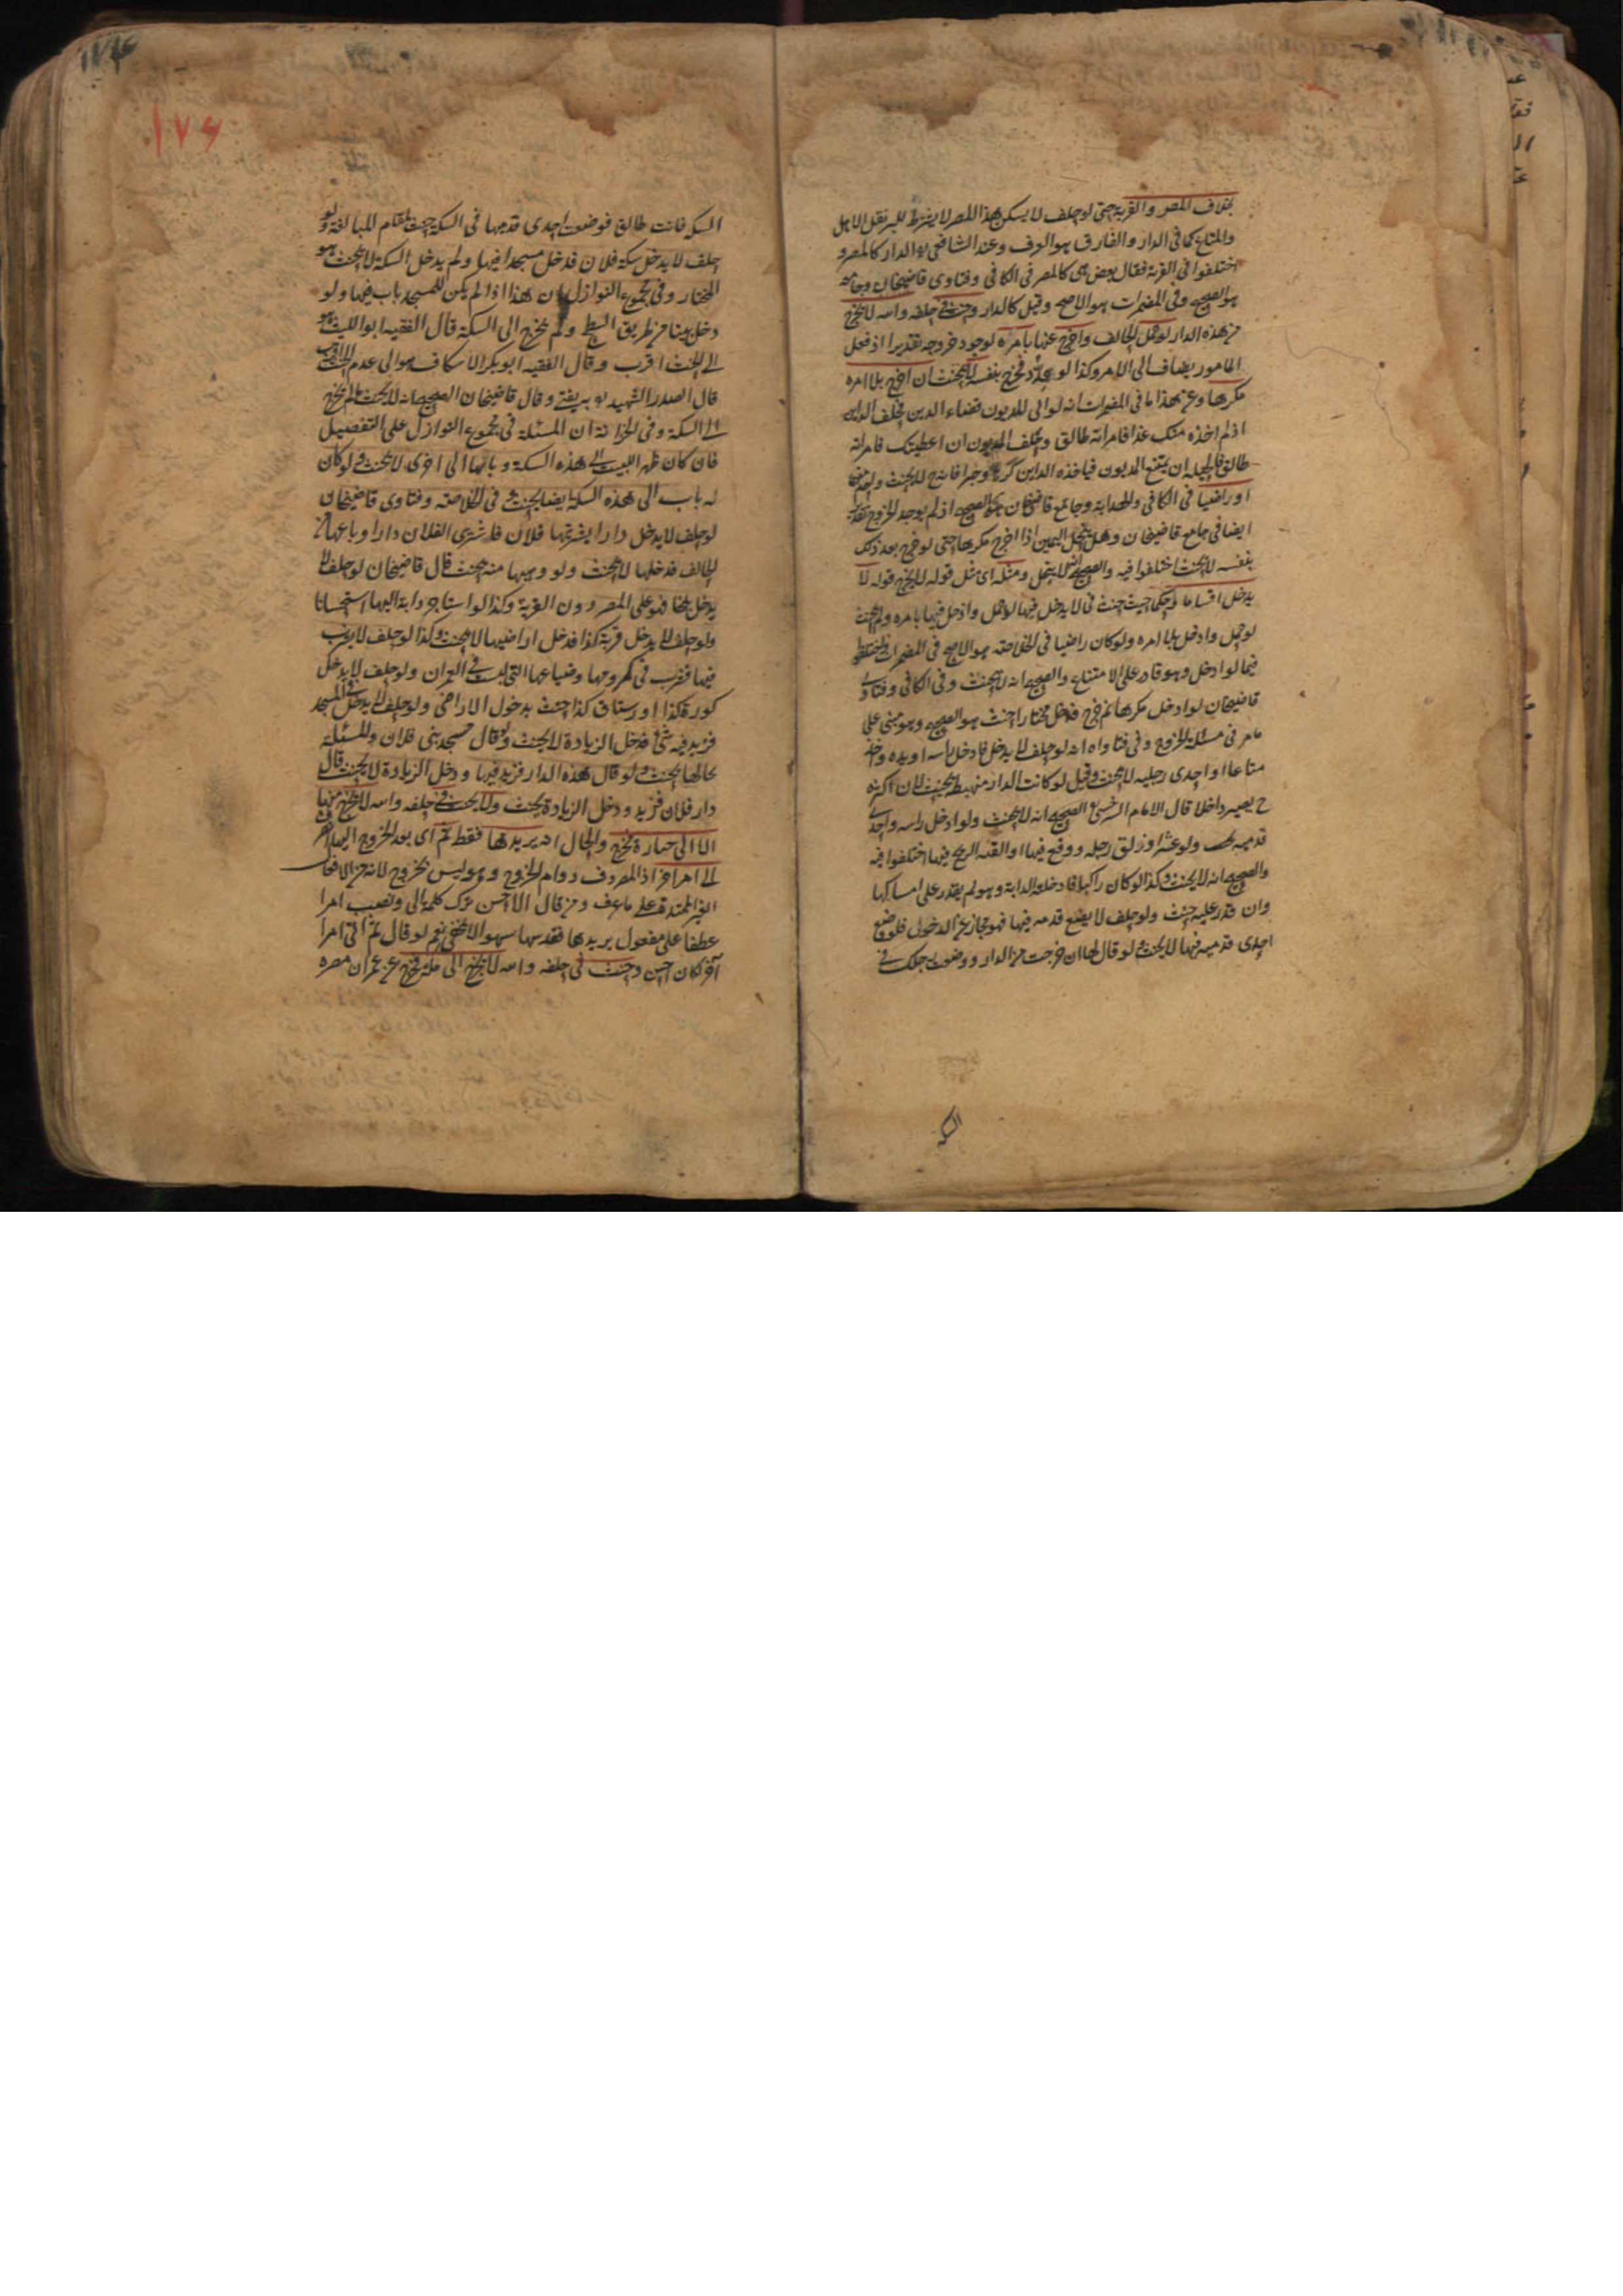 بخلاف المصر والقرية حتى لو حلف لا يسكن هذا المصر لا يشترط للبر نقل الاهل
والمتاع كما في الدار والفارق هو العرف وعند الشافعي الدار كالمصر و
اختلفوا في القرية فقال بعض هي كالمصر في الكافي وفتاوى قاضيخان وجامعه
هو الصحيح وفي المضمرات هو الاصح وقيل كالدار وحنث في حلفه والله لا يخرج
من هذه الدار لو حمل الحالف واخرج عنها بامره لوجود خروجه تقديرا اذ فعل
المامور يضاف الى الامر وكذا لو فخرج بنفسه لا يحنث ان اخرج بلا امره
مكرها وعن هذا ما في المضمرات انه لو ابى المديون قضاء الدين فحلف الداين
ان لم اخذه منك غدا فامراته طالق وحلف المديون ان اعطيتك فامراته
طالق فالحيلة ان يمتنع المديون فياخذه الداين كرها وجبرا فانه لا يحنث ولو
او راضيا في الكافي والهداية وجامع قاضيخان هو الصحيح اذ لم يوجد الخروج
ايضا في جامع قاضيخان وهل ينحل اليمين اذا اخرج مكرها حتى لو خرج بعد ذلك
بنفسه لا يحنث اختلفوا فيه والصحيح لا ينحل ومثله اي مثل قوله لا يخرج قوله لا
يدخل اقساما وحكما حيث حنث في لا يدخل فيها لو حمل وادخل فيها بامره ولم يحنث
لو حمل وادخل بلا امره ولو كان راضيا في الخلاصة هو الاصح في المضمرات
فيما لو ادخل وهو قادر على الامتناع والصحيح انه لا يحنث وفي الكافي وفتاوى
قاضيخان لو ادخل مكرها ثم خرج فدخل مختارا حنث هو الصحيح وهو مبني على
ما مر في مسئلة الخروج وفي فتاواه انه لو حلف لا يدخل فادخل راسه او يده واخذ
متاعا او احدى رجليه لا يحنث وقيل لو كانت الدار منهبطة يحنث لان اكثره
ح يصير داخلا قال الامام السرخسي الصحيح انه لا يحنث ولو ادخل راسه واحدى
قدميه حنث ولو عثر او زلق رجله ووقع فيها او القته الريح فيها اختلفوا فيه
والصحيح انه لا يحنث وكذا لو كان راكبا فادخلته الدابة وهو لم يقدر على امساكها
وان قدر عليه حنث ولو حلف لا يضع قدمه فيها فهو مجاز عن الدخول فلو وضع
احدى قدميه فيها لا يحنث ولو قال لها ان خرجت من الدار ووضعت رجلك في
السكة
١٧٦
السكة فانت طالق فوضعت احدى قدميها في السكة حنث لمقام المبالغة ولو
حلف لا يدخل سكة فلان فدخل مسجدا فيها ولم يدخل السكة لا يحنث هو
المختار وفي مجموع النوازل ان هذا اذا لم يكن للمسجد باب فيها ولو
دخل بيتا من طريق السطح ولم يخرج الى السكة قال الفقيه ابو الليث هو
الى الحنث اقرب وقال الفقيه ابو بكر الاسكاف هو الى عدم الحنث اقرب
قال الصدر الشهيد وبه يفتى وقال قاضيخان الصحيح انه لا يحنث ما لم يخرج
الى السكة وفي الخزانة ان المسئلة في مجموع النوازل على التفصيل
فان كان ظهر البيت الى هذه السكة وبابها الى اخرى لا يحنث ولو كان
له باب الى هذه السكة ايضا يحنث في الخلاصة وفتاوى قاضيخان
لو حلف لا يدخل دارا يشتريها فلان فاشترى الفلان دارا وباعها من
الحالف فدخلها لا يحنث ولو وهبها منه يحنث قال قاضيخان لو حلف لا
يدخل بلخا فهو على المصر دون القرية وكذا لو استاجر دابة اليها استحسانا
ولو حلف لا يدخل قرية كذا فدخل اراضيها لا يحنث وكذا لو حلف لا يشرب
فيها فشرب في كرومها وضياعها التي ليست في العمران ولو حلف لا يدخل
كورة كذا او رستاق كذا حنث بدخول الاراضي ولو حلف لا يدخل في المسجد
فزيد فيه شئ فدخل الزيادة لا يحنث ولو قال مسجد بني فلان والمسئلة
بحالها يحنث ولو قال هذه الدار فزيد فيها ودخل الزيادة لا يحنث ولو قال
دار فلان فزيد ودخل الزيادة يحنث ولا يحنث في حلفه والله لا يخرج منها
الا الى جنازة فخرج والحال انه يريدها فقط ثم اى بعد الخروج اليها
الى امر اخر اذ المعروف دوام الخروج وهو ليس بخروج لانه من الافعال
الغير الممتدة على ما عرف ومن قال الاحسن ترك كلمة الى ونصب امرا
عطفا على مفعول يريدها فقد سها سهوا لا يخفى نعم لو قال ثم اتى امرا
آخر لكان احسن وحنث في حلفه والله لا يخرج الى مكة فخرج عن عمران مصره